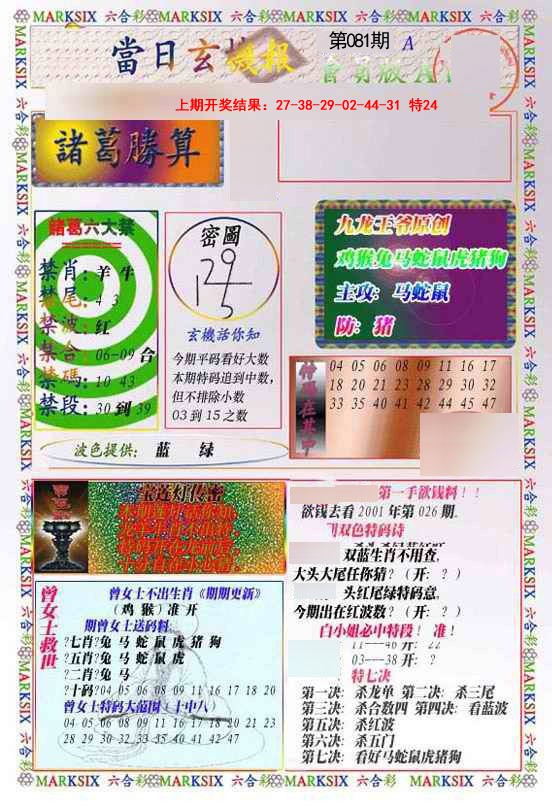 MARKSIX 六合彩 MARKSIX 六合彩 MARKSIX 六合彩 MARKSIX 六合彩 MARKSIX
當日玄機报
第081期 A
上期开奖结果：27-38-29-02-44-31 特24
諸葛勝算
諸葛六大禁
禁肖：羊牛
禁尾：4 3
禁波：红
禁合：06-09合
禁碼：10 43
禁段：30到39
密圖
玄機話你知
今期平码看好大数
本期特码追到中数，
但不排除小数
03到15之数
九龙王爷原创
鸡猴兔马蛇鼠虎猪狗
主攻：马蛇鼠
防：猪
04 05 06 08 09 11 16 17
18 20 21 23 28 29 30 32
33 35 40 41 42 44 45 47
波色提供：蓝 绿
宝莲灯传密
第一手欲钱料！！
欲钱去看2001年第026期
双色特码诗
双蓝生肖不用查，
大头大尾任你猜？（开：？）
头红尾绿特码意，
今期出在红波数？（开：？）
白小姐必中特段！准！
11---46 开：22
03---38 开：？
特七决
第一决：杀龙单 第二决：杀三尾
第三决：杀合数四 第四决：看蓝波
第五决：杀红波
第六决：杀五门
第七决：看好马蛇鼠虎猪狗
曾女士救世
曾女士不出生肖《期期更新》
（鸡猴）准开
期曾女士送码料
?七肖?兔马蛇鼠虎猪狗
?五肖?兔马蛇鼠虎
?二肖?兔马
?十码?04 05 06 08 09 11 16 17 18 20
曾女士特码大范围（十中八）
04 05 06 08 09 11 16 17 18 20 21 23
28 29 30 32 33 35 40 41 42 47
MARKSIX 六合彩 MARKSIX 六合彩 MARKSIX 六合彩 MARKSIX 六合彩 MARKSIX